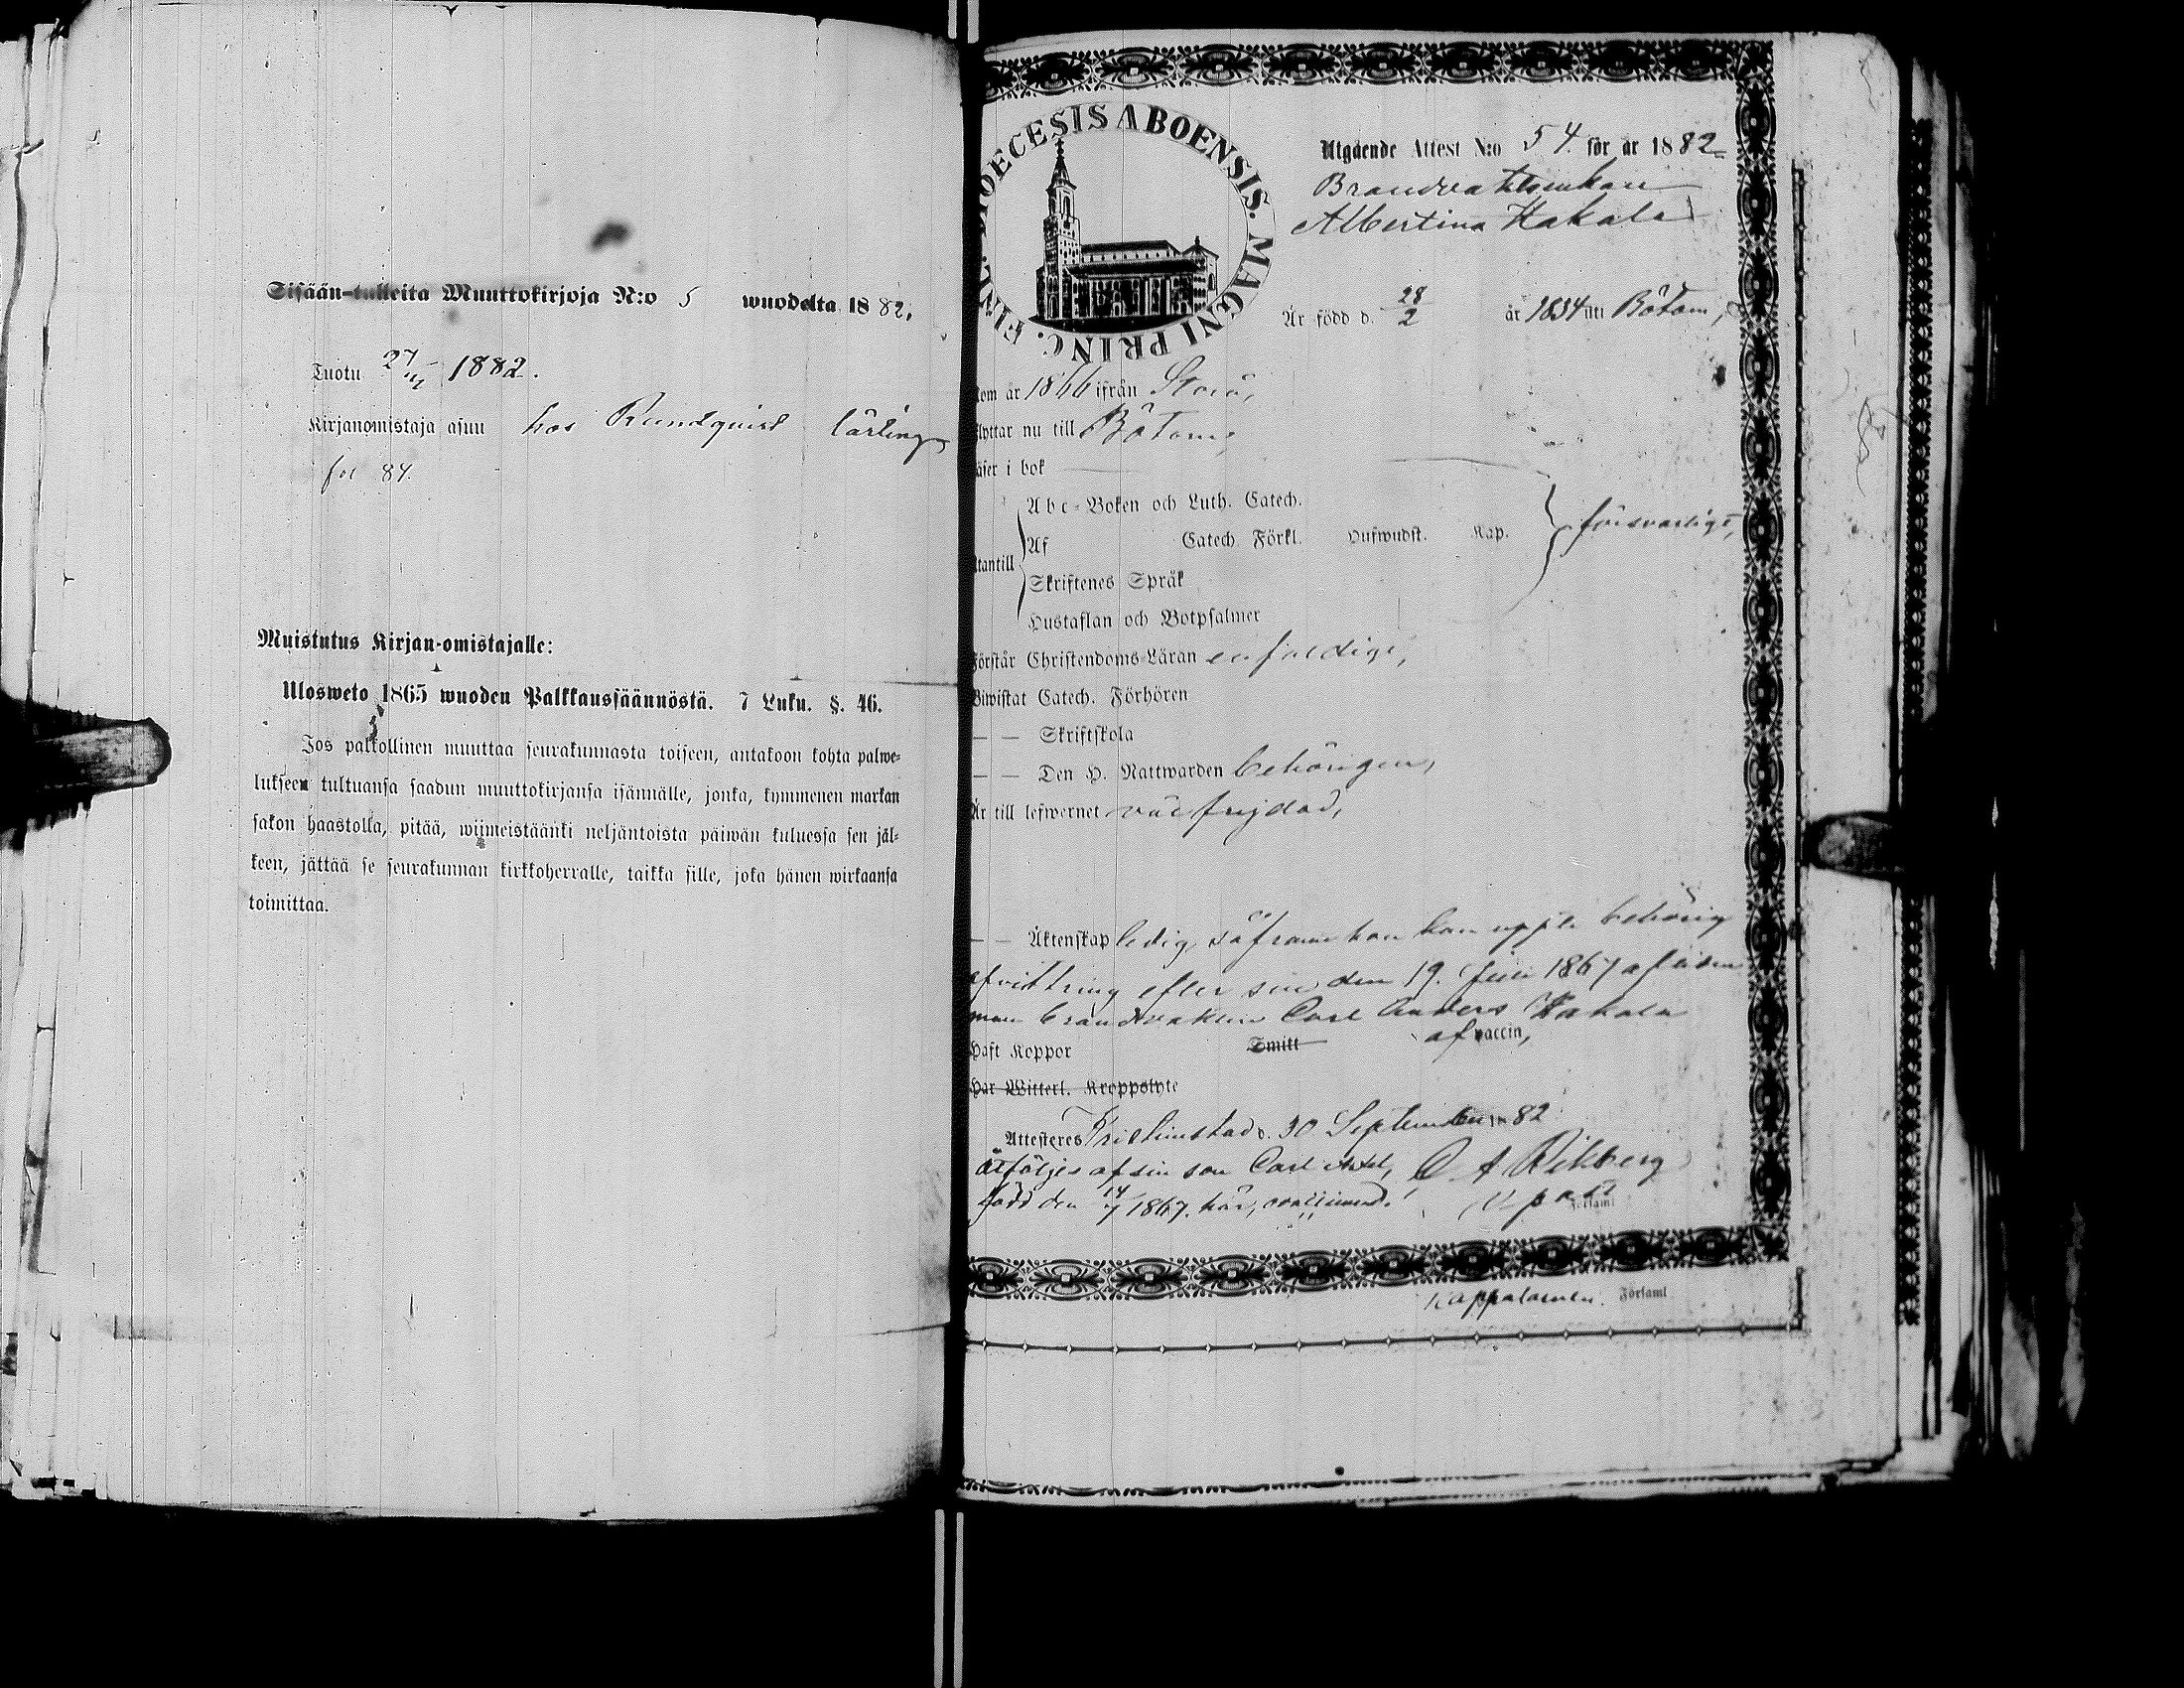 Sisään-tulleita Muuttokirjoja N:o 5 wuodelta 1882.
Tuotu 27/11 1882.
Kirjanomistaja asuu hos Rundquist lärling
fol 84.
Muistutus Kirjan-omistajalle:
Ulosweto 1865 wuoden Palkkaussäännöstä. 7 Luku. §. 46.
Jos palkollinen muuttaa seurakunnasta toiseen, antakoon kohta palwe-
lukseen tultuansa saadun muuttokirjansa isännälle, jonka, kymmenen markan
sakon haastolla, pitää, wiimeistäänki neljäntoista päiwän kuluessa sen jäl-
keen, jättää se seurakunnan kirkkoherralle, taikka sille, joka hänen wirkaansa
toimittaa.
DIOECESIS ABOENSIS. MAGNI PRINC. FINL.
Utgående Attest N:o 54. för år 1882
Albertina Hakala
Är född d. 28/2 år 1834 uti Bötom,
Kom år 1866 ifrån Storå,
Flyttar nu till Bötom,
Läser i bok
Abc-Boken och Luth. Catech.
Utantill Af Catech. Förkl. Hufwudst. Kap. försvarligt,
Skriftenes Språk
Hustaflan och Botpsalmer
Förstår Christendoms-Läran enfaldigt,
Biwistat Catech. Förhören
— — Skriftskola
— — Den H. Nattwarden behörigen,
Är till lefwernet väl frejdad,
— — Äktenskap ledig, såframt hon kan uppte behörig
afvittring efter sin den 19. Juli 1867 afledne
man brandvakten Carl Anders Hakala
Haft Koppor Smitt af vaccin,
Har Witterl. Kroppslyte
Attesteras Kristinestad d. 30 September 1882
åtföljes af sin son Carl Axel, C A Rikberg
född den 14/7 1867. här, vaccinerad. V. past
Församl
Kappalainen. Församl